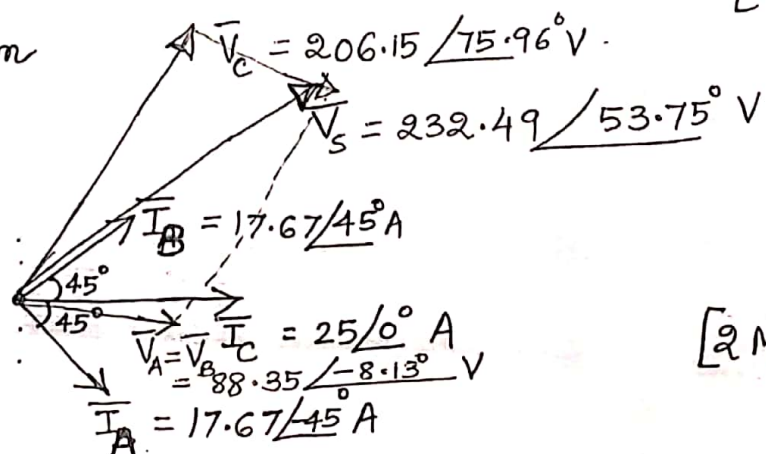 n
V̅_C = 206.15 /75.96° V.
V̅_S = 232.49 /53.75° V
I̅_B = 17.67/45° A
45°
45°
I̅_C = 25/0° A
V̅_A = V̅_B
= 88.35 /-8.13° V
I̅_A = 17.67/-45° A
[2 M